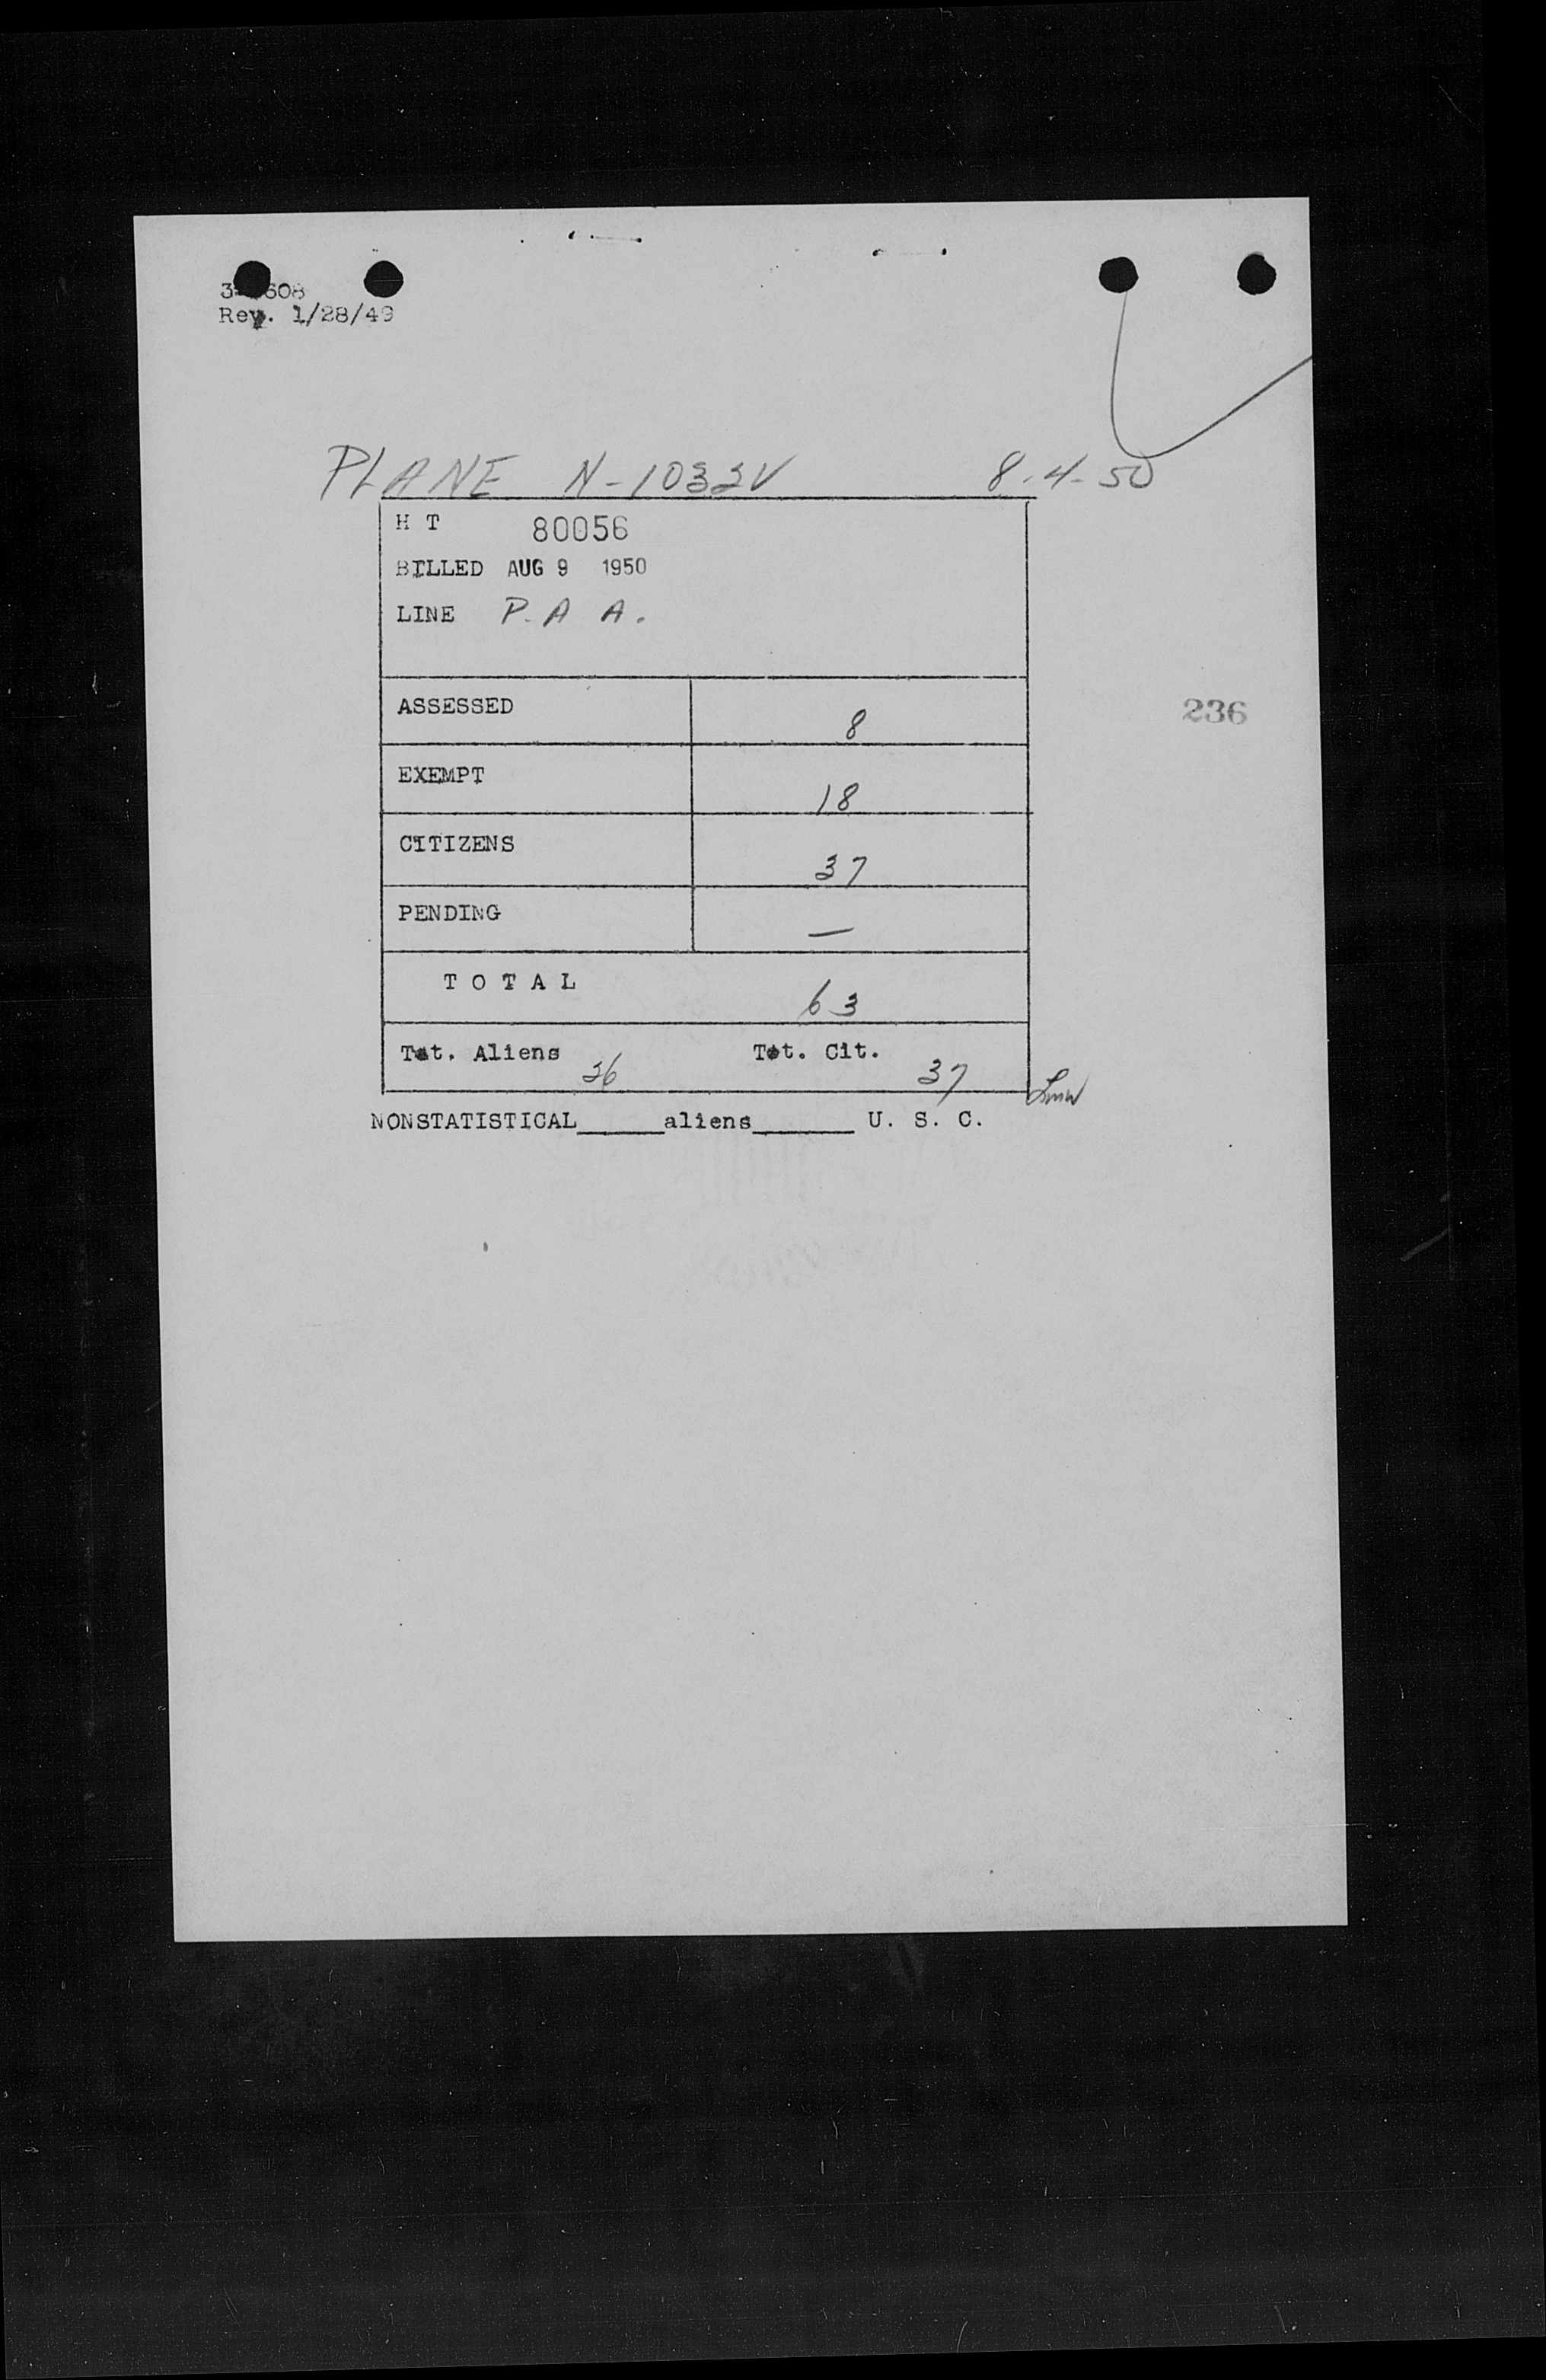 608
Rev. 1/28/49
PLANE N-1032V 8-4-50
H T 80056
BILLED AUG 9 1950
LINE P.A A.
ASSESSED 8
236
EXEMPT 18
CITIZENS 37
PENDING —
T O T A L 63
Tot. Aliens 26 Tot. Cit. 37
NONSTATISTICAL_____aliens______ U. S. C.